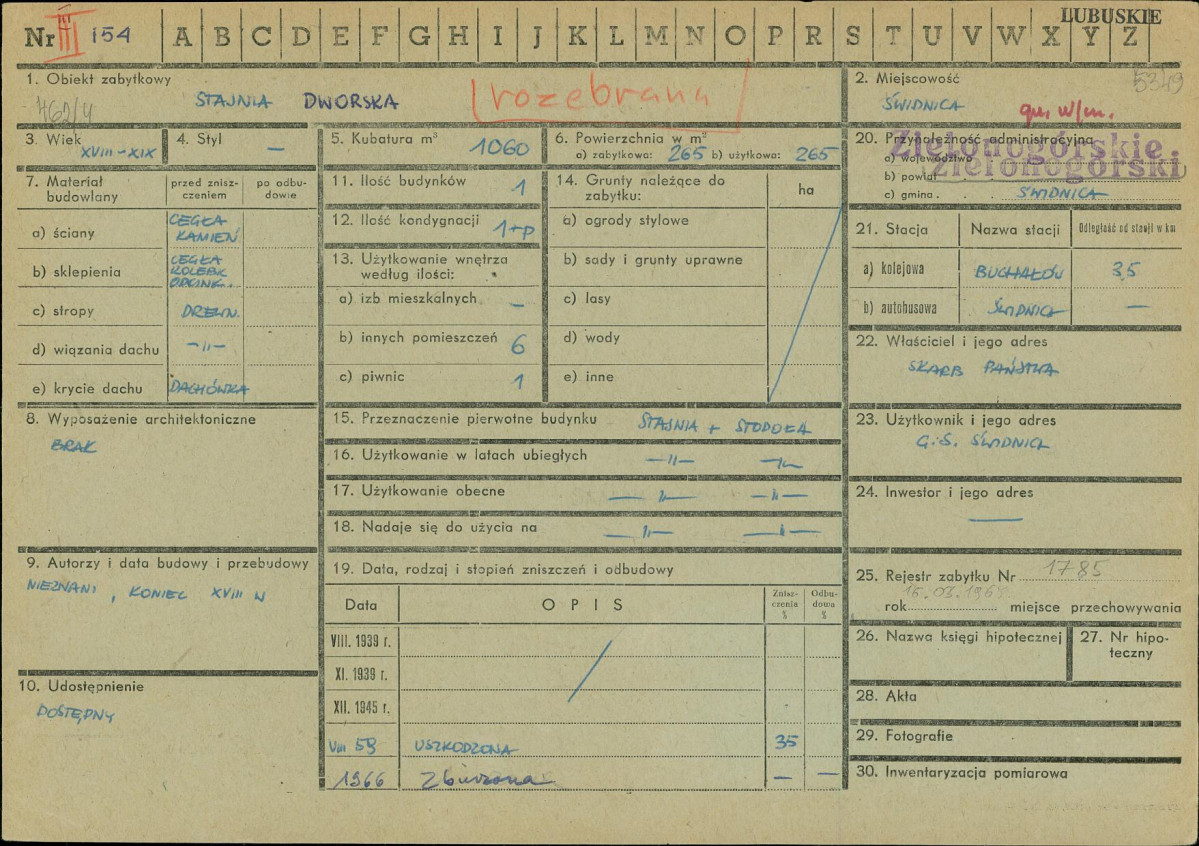 Nr III 154 A B C D E F G H I J K L M N O P R S T U V W X Y Z LUBUSKIE
1. Obiekt zabytkowy
462/4
STAJNIA DWORSKA
rozebrana
2. Miejscowość
5349
ŚWIDNICA
gm. w/m.
3. Wiek
XVIII-XIX
4. Styl
—
5. Kubatura m³
1060
6. Powierzchnia w m²
a) zabytkowa: 265 b) użytkowa: 265
7. Materiał budowlany
przed znisz-
czeniem
po odbu-
dowie
a) ściany CEGŁA KAMIEŃ
b) sklepienia CEGŁA KOLEBK ODCINK.
c) stropy DREWN.
d) wiązania dachu -"-
e) krycie dachu DACHÓWKA
8. Wyposażenie architektoniczne
BRAK
9. Autorzy i data budowy i przebudowy
NIEZNANI, KONIEC XVIII W
10. Udostępnienie
DOSTĘPNY
11. Ilość budynków 1
12. Ilość kondygnacji 1+p
13. Użytkowanie wnętrza
według ilości:
a) izb mieszkalnych —
b) innych pomieszczeń 6
c) piwnic 1
14. Grunty należące do
zabytku:
ha
a) ogrody stylowe
b) sady i grunty uprawne
c) lasy
d) wody
e) inne
15. Przeznaczenie pierwotne budynku STAJNIA + STODOŁA
16. Użytkowanie w latach ubiegłych —"— —"—
17. Użytkowanie obecne —"— —"—
18. Nadaje się do użycia na —"— —"—
19. Data, rodzaj i stopień zniszczeń i odbudowy
Data OPIS
Znisz-
czenia
%
Odbu-
dowa
%
VIII. 1939 r.
XI. 1939 r.
XII. 1945 r.
VIII 59 USZKODZONA 35
1966 Zburzona — —
20. Przynależność administracyjna
a) województwo Zielonogórskie
b) powiat zielonogórski
c) gmina ŚWIDNICA
21. Stacja Nazwa stacji Odległość od stacji w km
a) kolejowa BUCHAŁÓW 3,5
b) autobusowa ŚWIDNICA —
22. Właściciel i jego adres
SKARB PAŃSTWA
23. Użytkownik i jego adres
G.S. ŚWIDNICA
24. Inwestor i jego adres
—
25. Rejestr zabytku Nr 1785
rok 16.03.196 miejsce przechowywania
26. Nazwa księgi hipotecznej
27. Nr hipo-
teczny
28. Akta
29. Fotografie
30. Inwentaryzacja pomiarowa